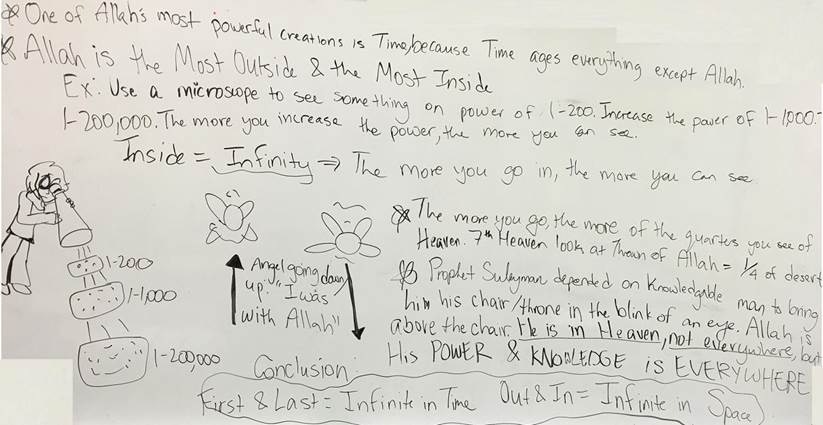 * One of Allah's most powerful creations is Time, because Time ages everything except Allah.
* Allah is the Most Outside & the Most Inside
Ex: Use a microscope to see something on power of 1-200. Increase the power of 1-1,000.-
1-200,000. The more you increase the power, the more you can see.
Inside = Infinity ⇒ The more you go in, the more you can see
* The more you go, the more of the quarters you see of
Heaven. 7th Heaven look at Thrown of Allah = 1/4 of desert
* Prophet Sulayman depended on Knowledgable man to bring
him his chair/throne in the blink of an eye. Allah is
above the chair. He is in Heaven, not everywhere, but
His POWER & KNOWLEDGE is EVERYWHERE
1-200
1-1,000
1-200,000
Angel going down/
up: "I was
with Allah"
Conclusion:
First & Last = Infinite in Time Out & In = Infinite in Space